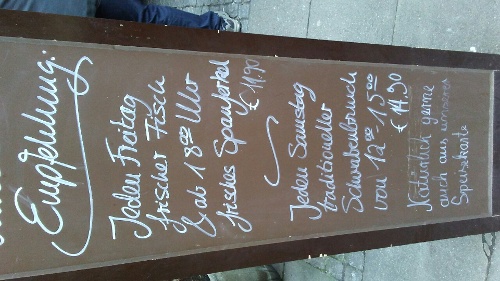 Empfehlung:
Jeden Freitag
frischer Fisch
& ab 18 00 Uhr
frisches Spanferkel
€ 11,90
Jeden Samstag
traditioneller
Schwabenbrunch
von 12 00 - 15 00
€ 14,90
Natürlich gerne
auch aus unserer
Speisekarte